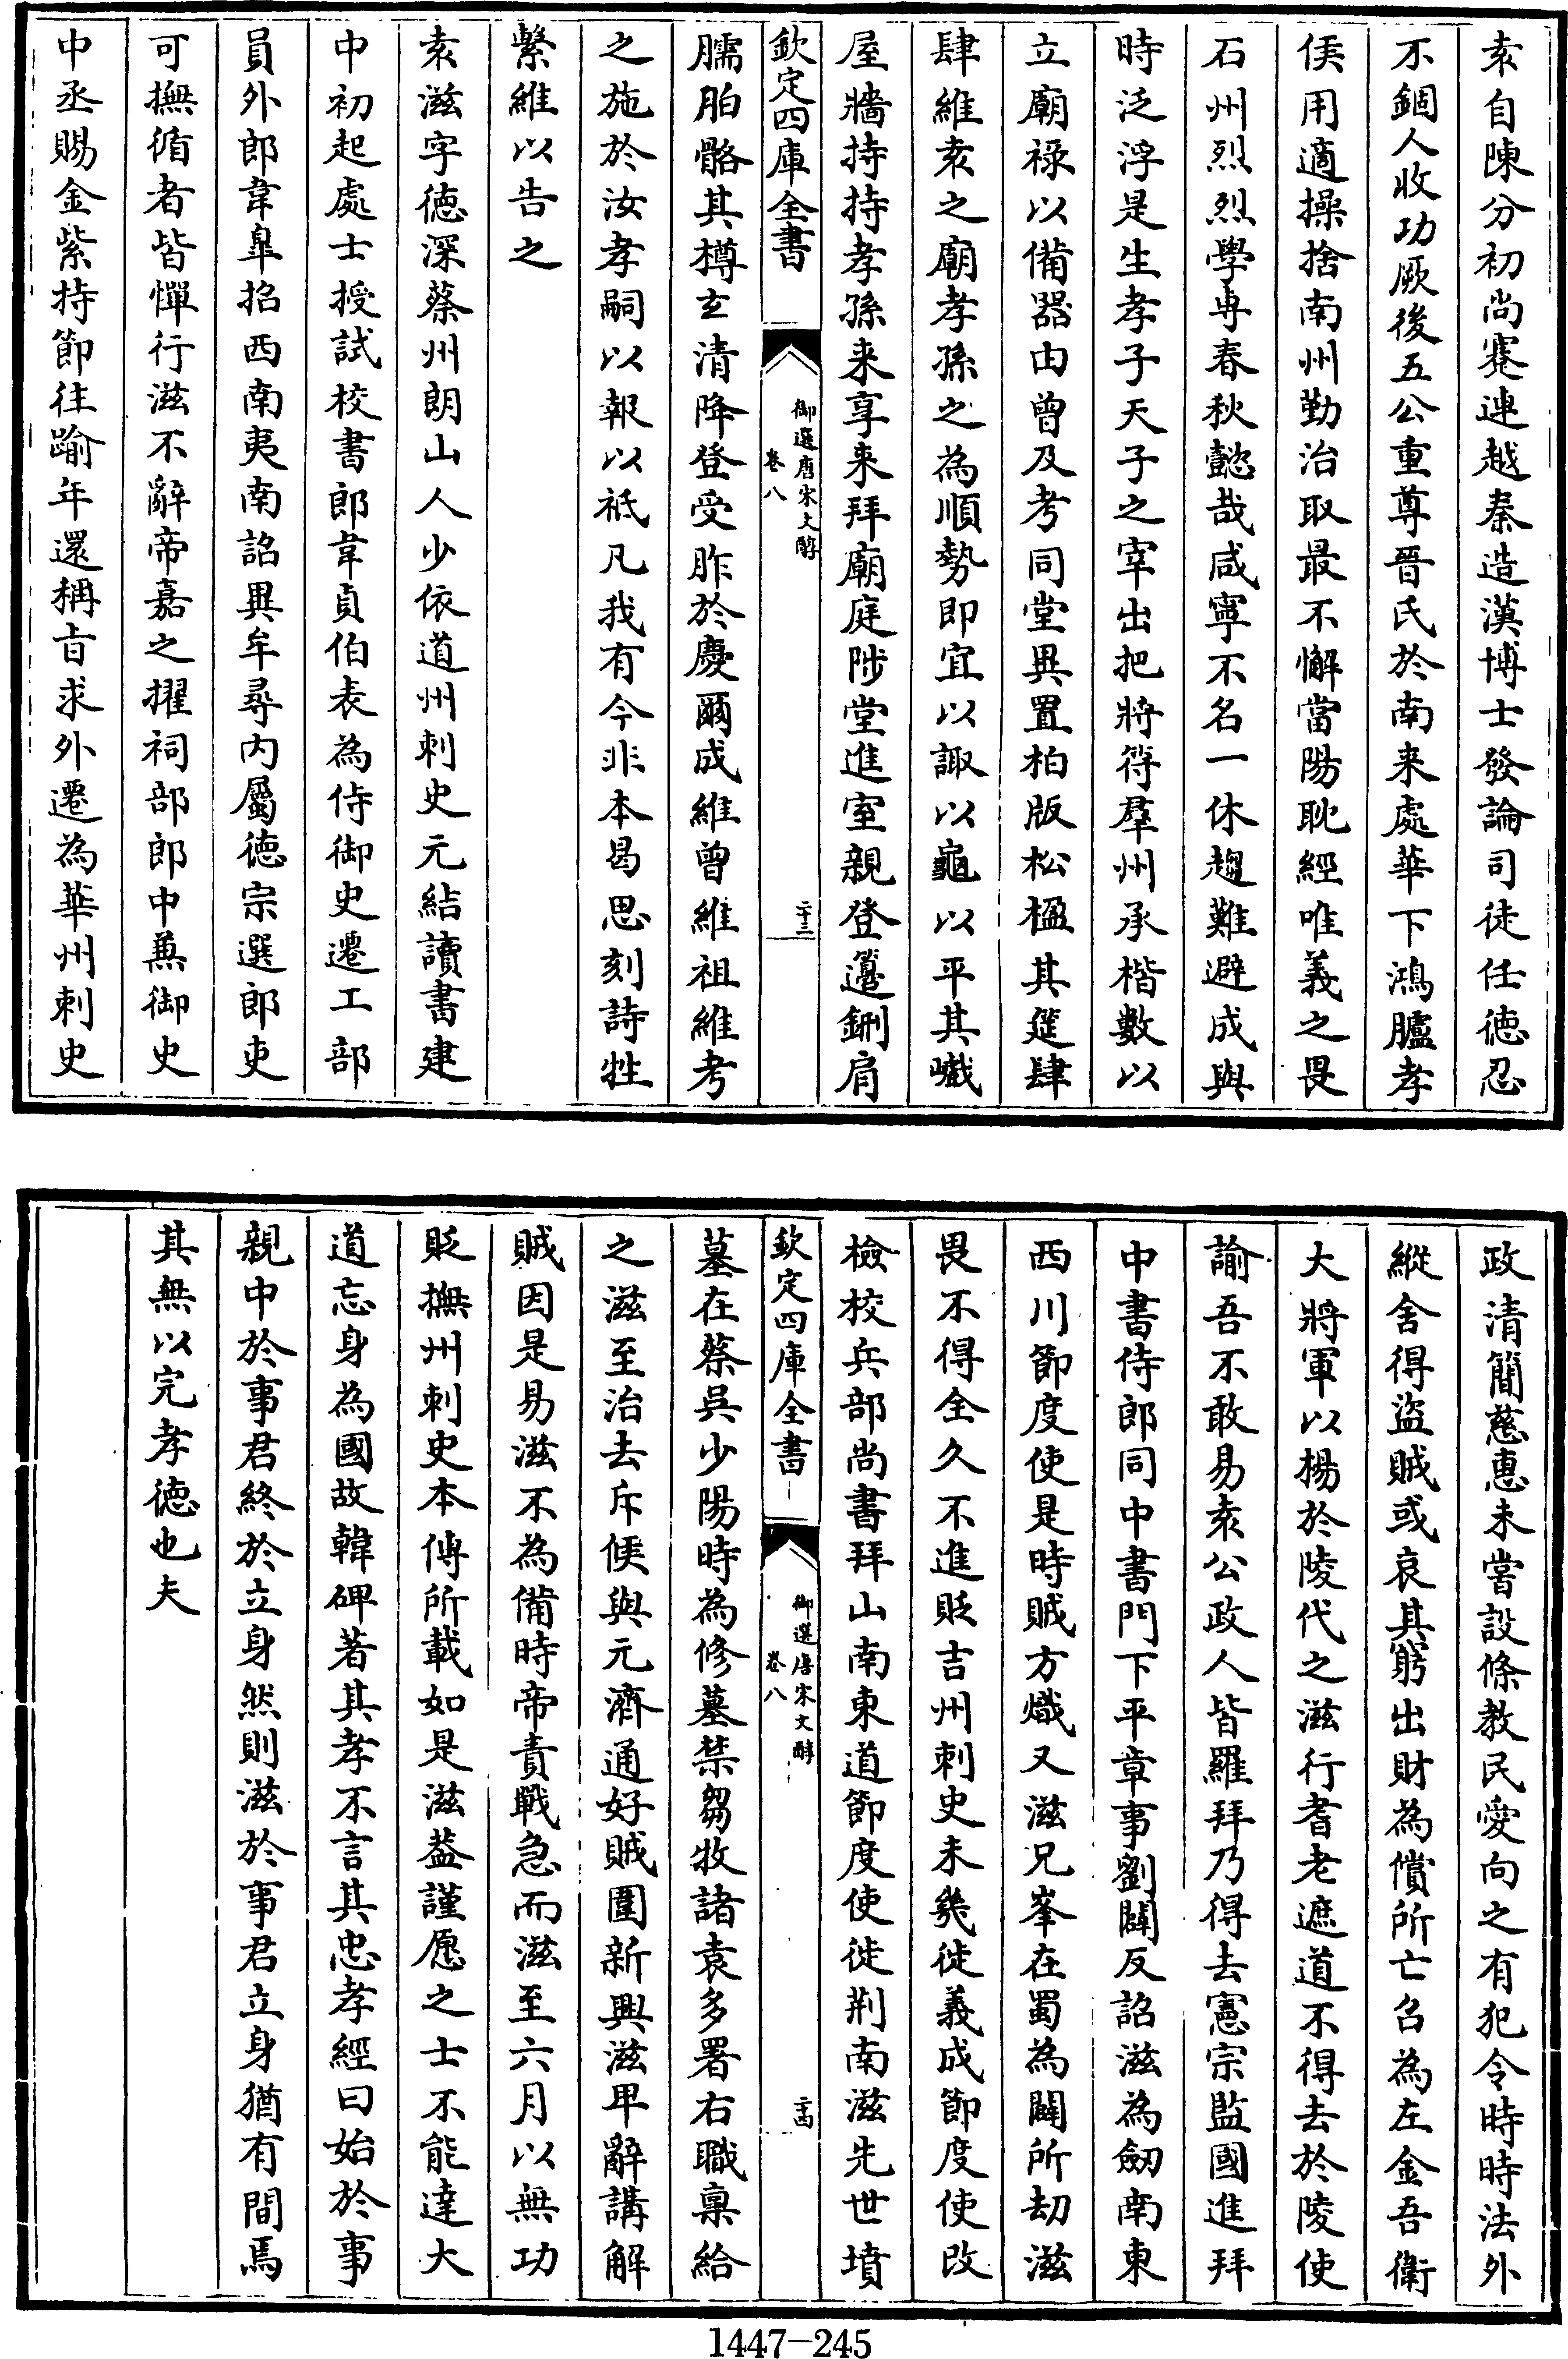 袁自陳分初尚蹇連越秦造漢博士發論司徒任徳忍
不錮人收功厥後五公重尊晉氏於南来處華下鴻臚孝
侯用適操捨南州勤治取最不懈當陽耽經唯義之畏
石州烈烈學専春秋懿哉咸寧不名一休趨難避成與
時泛浮是生孝子天子之宰出把將符羣州承楷數以
立廟祿以備器由曾及考同堂異置柏版松楹其筵肆
肆維袁之廟孝孫之為順勢即宜以諏以龜以平其巇
屋牆持持孝孫来享来拜廟庭陟堂進室親登籩鉶肩
欽定四庫全書
御選唐宋文醇
卷八
二十三
臑胉骼其樽玄清降登受胙於慶爾成維曾維祖維考
之施於汝孝嗣以報以祗凡我有今非本曷思刻詩牲
繫維以告之
袁滋字徳深蔡州朗山人少依道州刺史元結讀書建
中初起處士授試校書郎韋貞伯表為侍御史遷工部
員外郎韋臯招西南夷南詔異牟尋内屬徳宗選郎吏
可撫循者皆憚行滋不辭帝嘉之擢祠部郎中兼御史
中丞賜金紫持節往踰年還稱旨求外遷為華州刺史
政清簡慈惠未嘗設條教民愛向之有犯令時時法外
縱舍得盜賊或哀其窮出財為償所亡召為左金吾衛
大將軍以楊於陵代之滋行耆老遮道不得去於陵使
諭吾不敢易袁公政人皆羅拜乃得去憲宗監國進拜
中書侍郎同中書門下平章事劉闢反詔滋為劒南東
西川節度使是時賊方熾又滋兄峯在蜀為闢所刧滋
畏不得全久不進貶吉州刺史未㡬徙義成節度使改
檢校兵部尚書拜山南東道節度使徙荆南滋先世墳
欽定四庫全書
御選唐宋文醇
卷八
二十四
墓在蔡吳少陽時為修墓禁芻牧諸袁多署右職稟給
之滋至治去斥候與元濟通好賊圍新興滋卑辭講解
賊因是易滋不為備時帝責戰急而滋至六月以無功
貶撫州刺史本傳所載如是滋葢謹愿之士不能達大
道忘身為國故韓碑著其孝不言其忠孝經曰始於事
親中於事君終於立身然則滋於事君立身猶有間焉
其無以完孝徳也夫
1447-245